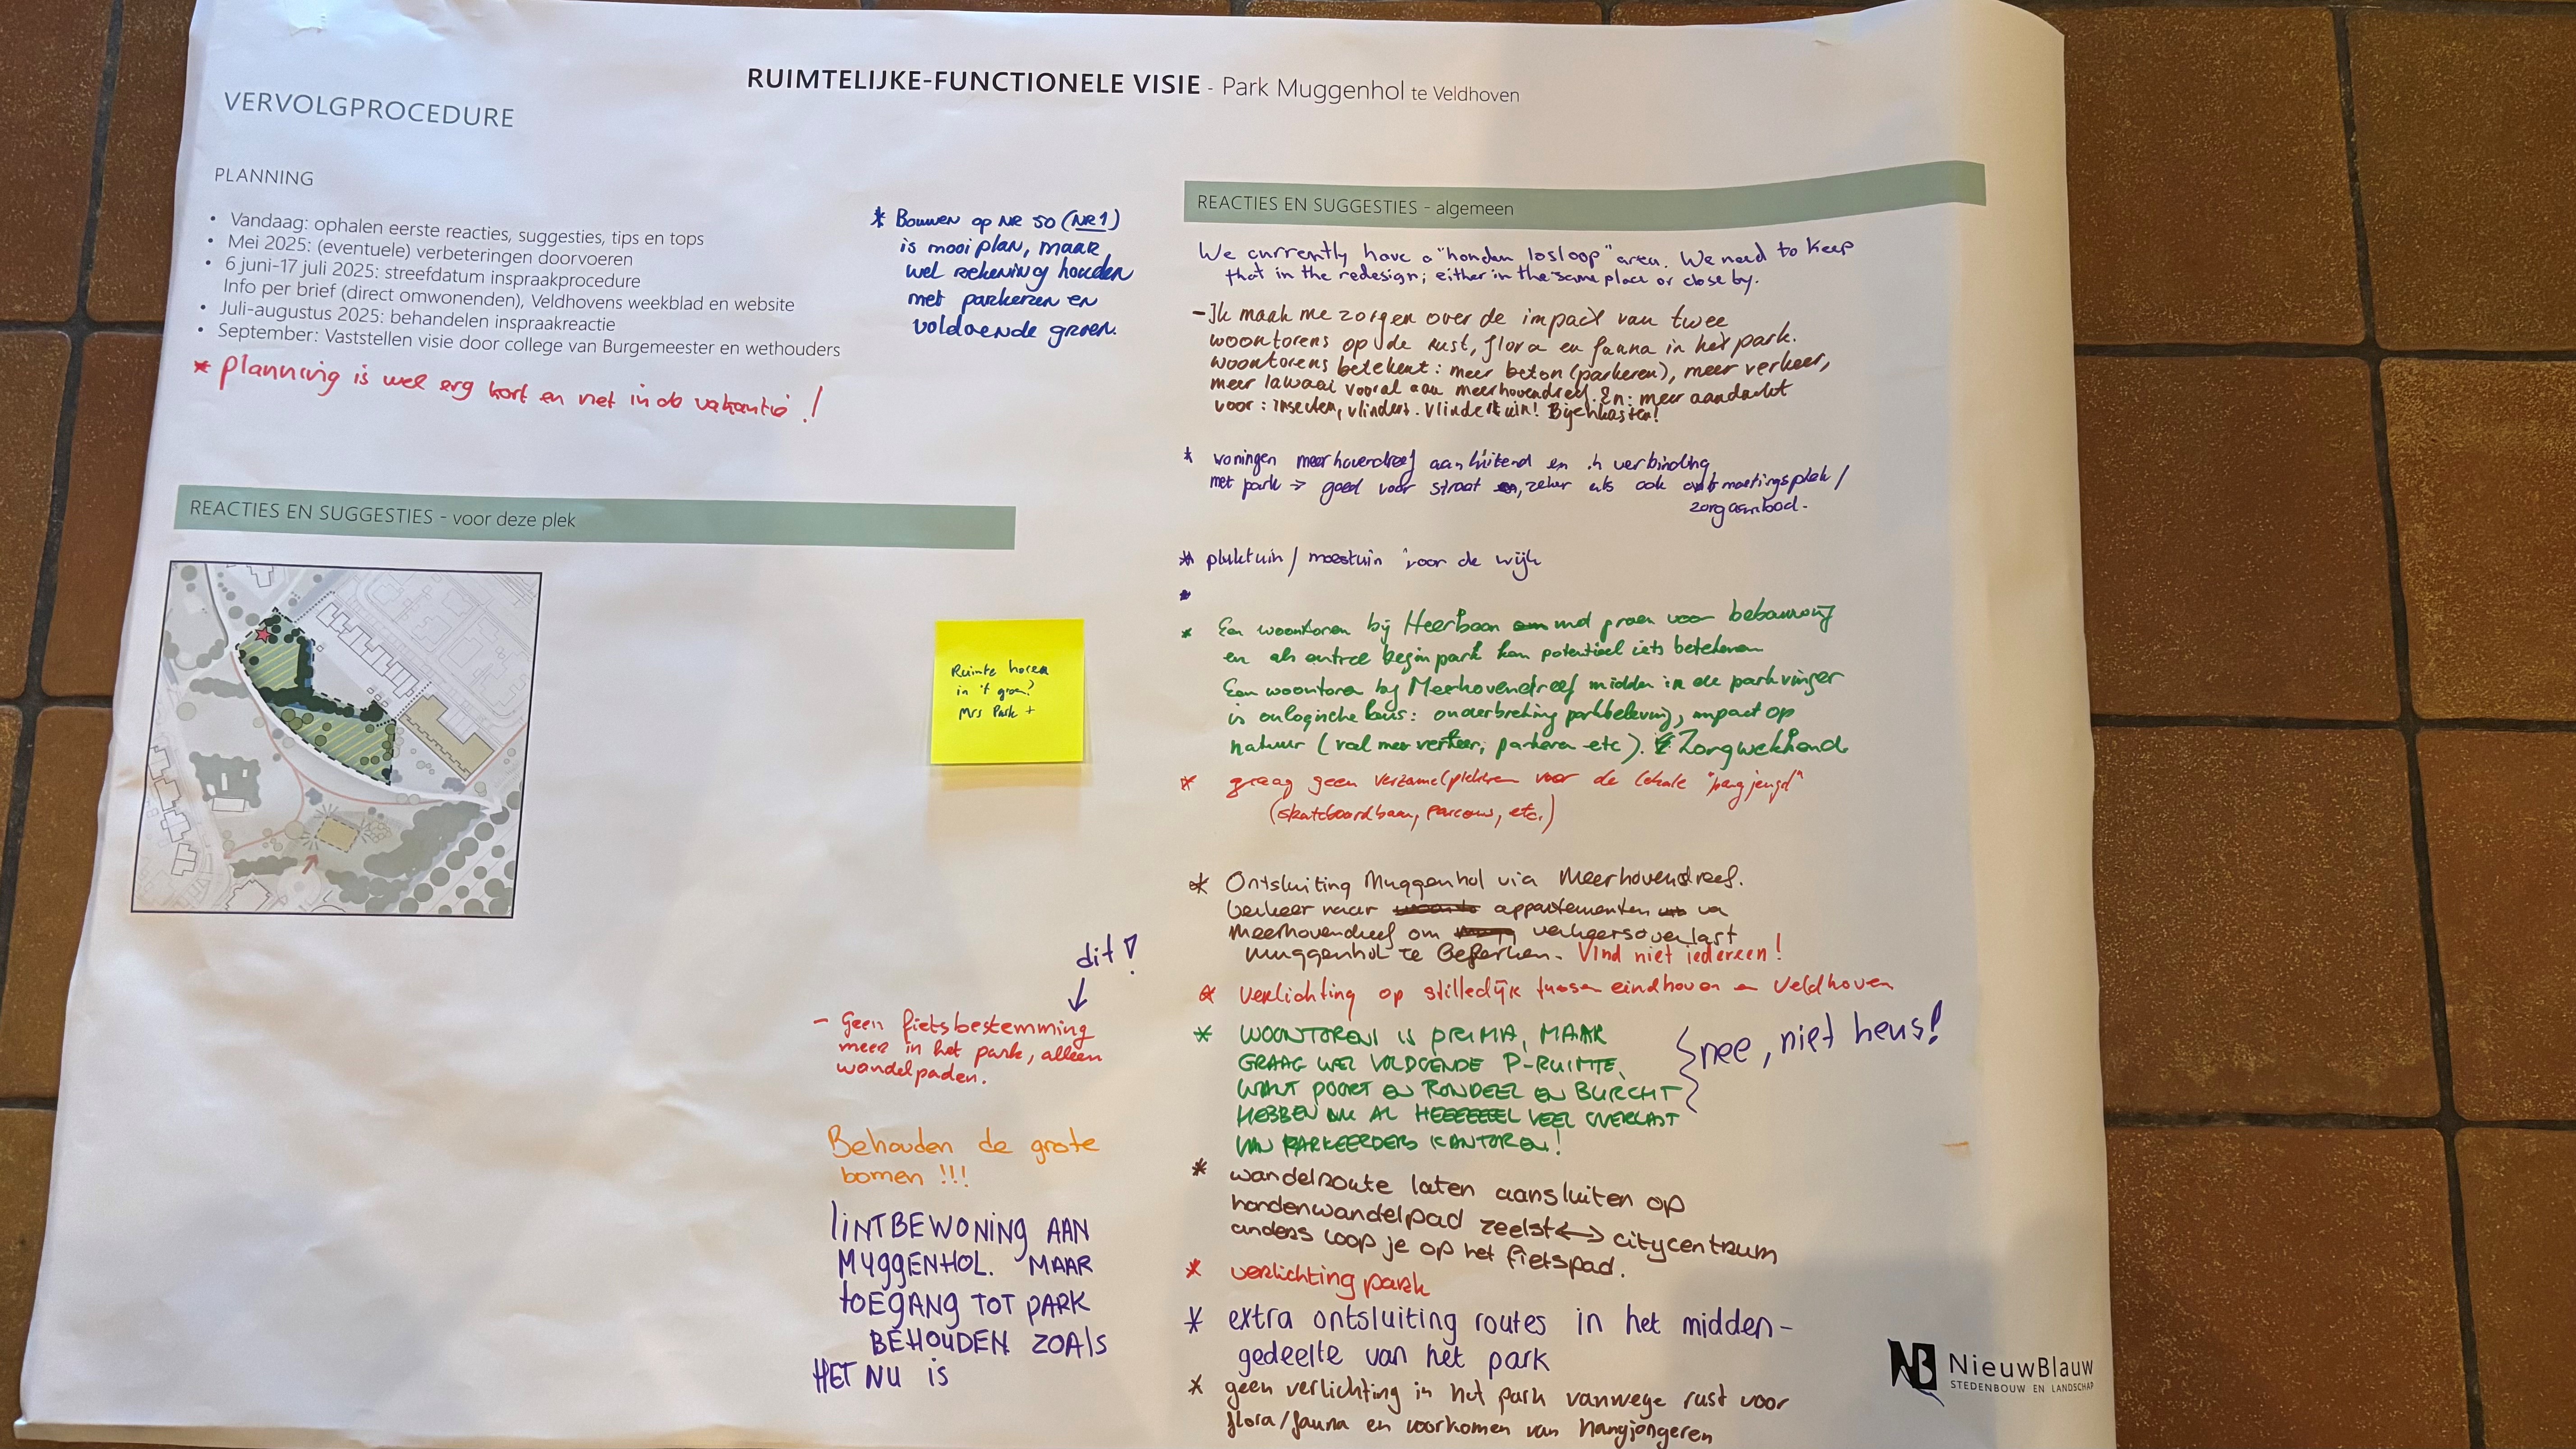 RUIMTELIJKE-FUNCTIONELE VISIE - Park Muggenhol te Veldhoven
VERVOLGPROCEDURE
PLANNING
• Vandaag: ophalen eerste reacties, suggesties, tips en tops
• Mei 2025: (eventuele) verbeteringen doorvoeren
• 6 juni-17 juli 2025: streefdatum inspraakprocedure
Info per brief (direct omwonenden), Veldhovens weekblad en website
• Juli-augustus 2025: behandelen inspraakreactie
• September: Vaststellen visie door college van Burgemeester en wethouders
* planning is wel erg kort en net in de vakantie!
* Bouwen op NR 50 (NR 1)
is mooi plan, maar
wel rekening houden
met parkeren en
voldoende groen.
REACTIES EN SUGGESTIES - voor deze plek
Ruimte horeca
in 't groen?
Mrs Park +
dit!
- Geen fietsbestemming
meer in het park, alleen
wandelpaden.
Behouden de grote
bomen !!!
lINTBEWONING AAN
MUggENHOL. MAAR
tOEGANG TOT PARK
BEHOUDEN ZOAlS
HET NU iS
REACTIES EN SUGGESTIES - algemeen
We currently have a "honden losloop" area. We need to keep
that in the redesign; either in the same place or close by.
- Ik maak me zorgen over de impact van twee
woontorens op de rust, flora en fauna in het park.
woontorens betekent: meer beton (parkeren), meer verkeer,
meer lawaai vooral aan meerhovendreef. En: meer aandacht
voor: insecten, vlinders. Vlindertuin! Bijenkasten!
* woningen meerhovendreef aansluitend en in verbinding
met park → goed voor straat, zeker als ook ontmoetingsplek/
zorgaanbod.
* pluktuin / moestuin voor de wijk
*
* Een woontoren bij Heerbaan md groen voor bebouwing
en als entree begin park kan potentieel iets betekenen
Een woontoren bij Meerhovendreef midden in de parkvinger
is onlogische keus: onderbreking parkbeleving, impact op
natuur (veel meer verkeer, parkeren etc). Zorgwekkend
* graag geen verzamelplekken voor de lokale "hangjeugd"
(skateboardbaan, parcours, etc.)
* Ontsluiting Muggenhol via Meerhovendreef.
verkeer naar appartementen via
Meerhovendreef om verkeersoverlast
Muggenhol te beperken. Vind niet iedereen!
* Verlichting op stilledijk tussen eindhoven en Veldhoven
* WOONTORENS IS PRIMA, MAAR
GRAAG WEL VOLDOENDE P-RUIMTE,
WANT POORT EN RONDEEL EN BURCHT
HEBBEN NU AL HEEEEEEL VEEL OVERLAST
VAN PARKEERDERS KANTOREN!
nee, niet heus!
* wandelroute laten aansluiten op
hondenwandelpad zeelst ↔ citycentrum
anders loop je op het fietspad.
* verlichting park
* extra ontsluiting routes in het midden-
gedeelte van het park
* geen verlichting in het park vanwege rust voor
flora/fauna en voorkomen van hangjongeren
NB NieuwBlauw
STEDENBOUW EN LANDSCHAP